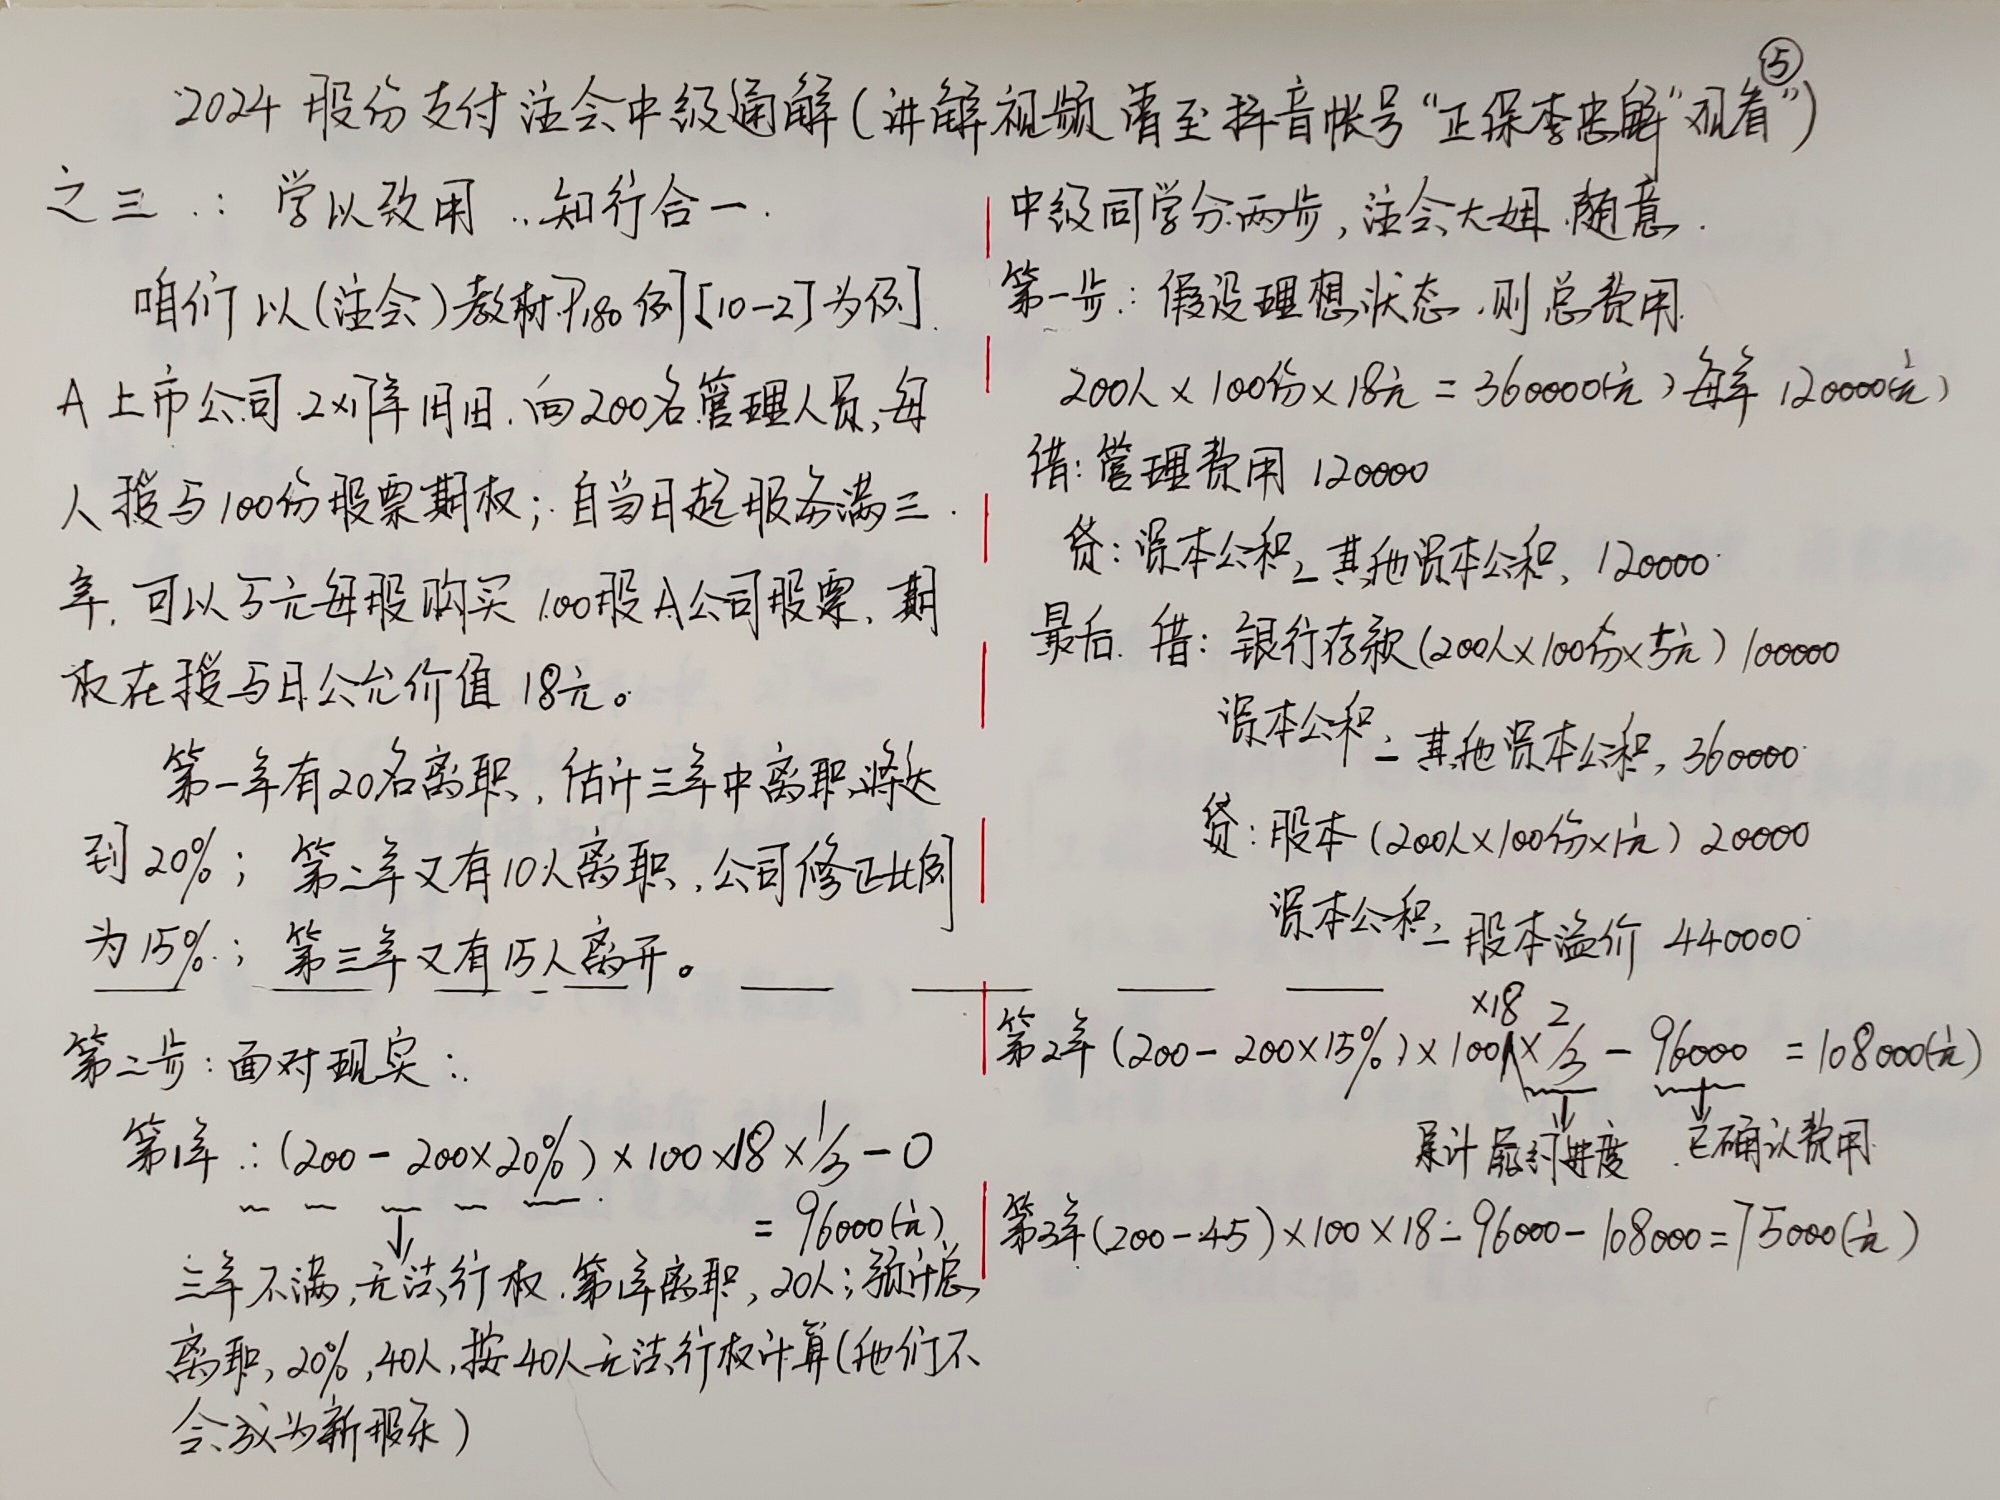 ⑤
2024 股份支付注会中级通解(讲解视频请至抖音帐号“正保李忠解”观看”)
之三.: 学以致用..知行合一.
咱们以(注会)教材P180例[10-2]为例.
A上市公司2×1年1月1日.向200名管理人员,每
人授与100份股票期权;自当日起服务满三.
年,可以5元每股购买100股A公司股票,期
权在授与日公允价值18元。
第一年有20名离职,估计三年中离职将达
到20%;第二年又有10人离职,公司修正比例
为15%.;第三年又有15人离开。
中级同学分两步,注会大姐.随意.
第一步:假设理想状态.则总费用
200人×100份×18元=360000(元)每年120000(元)
借:管理费用120000
贷:资本公积—其他资本公积,120000
最后.借:银行存款(200人×100份×5元)100000
资本公积—其他资本公积,360000
贷:股本(200人×100份×1元)20000
资本公积—股本溢价440000
第二步:面对现实:.
第1年.:(200-200×20%)×100×18×1/3-0
=96000(元)
三年不满,无法行权.第1年离职,20人;预计总
离职,20%,40人,按40人无法行权计算(他们不
会成为新股东)
第2年(200-200×15%)×100×18×2/3-96000=108000(元)
累计履约进度.已确认费用
第3年(200-45)×100×18-96000-108000=75000(元)